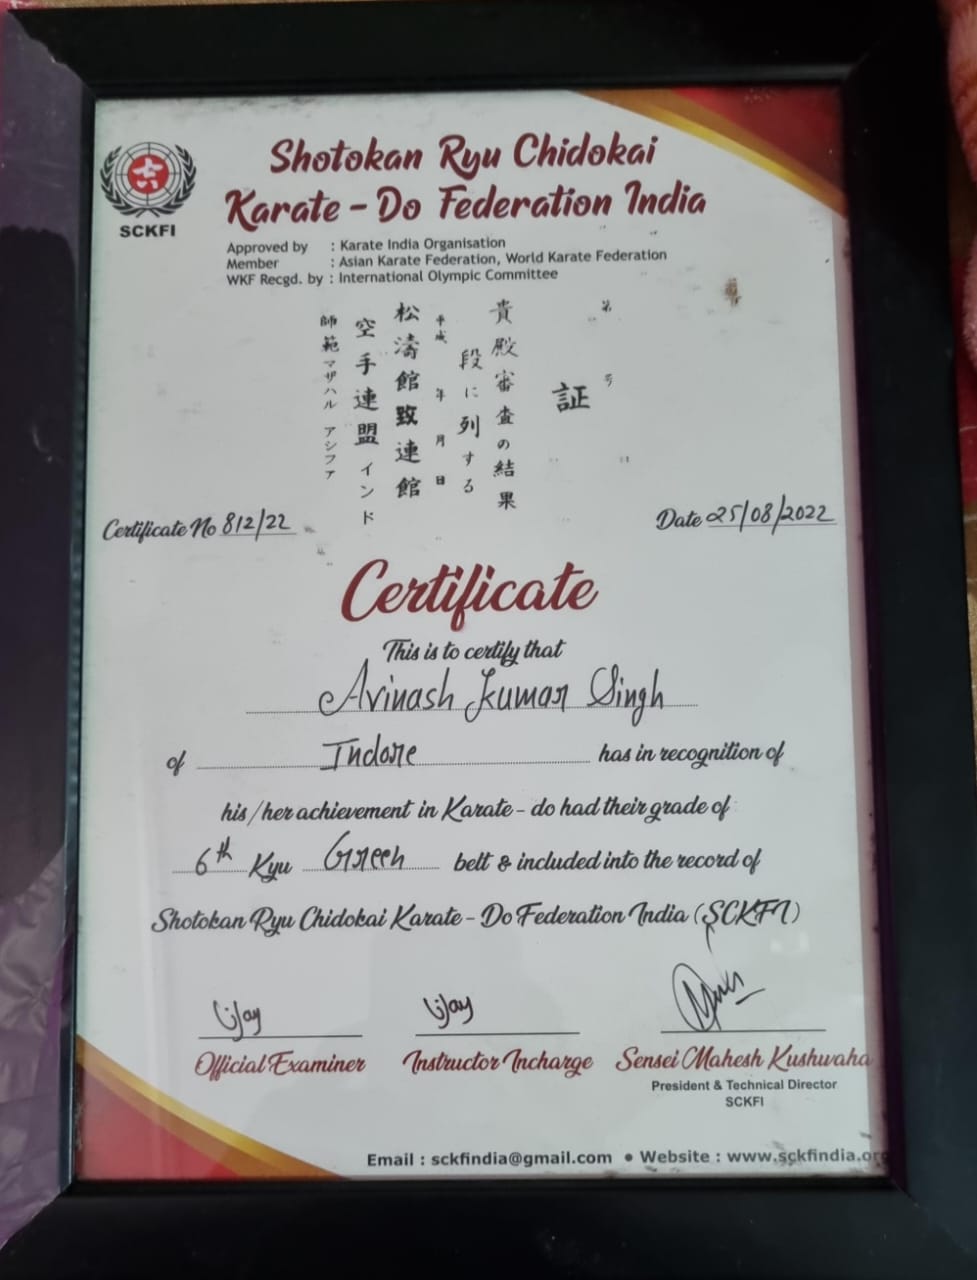 Shotokan Ryu Chidokai
Karate - Do Federation India
SCKFI
Approved by : Karate India Organisation
Member : Asian Karate Federation, World Karate Federation
WKF Recgd. by : International Olympic Committee
第 号
証
貴殿審査の結果
段に列する
平成 年 月 日
松濤館致連館
空手連盟インド
師範マザハル アシファ
Certificate No 812/22
Date 25/08/2022
Certificate
This is to certify that
Avinash Kumar Singh
of Indore has in recognition of
his/her achievement in Karate - do had their grade of
6th Kyu Green belt & included into the record of
Shotokan Ryu Chidokai Karate - Do Federation India (SCKFI)
Vijay Vijay
Official Examiner Instructor Incharge Sensei Mahesh Kushwaha
President & Technical Director
SCKFI
Email : sckfindia@gmail.com • Website : www.sckfindia.org